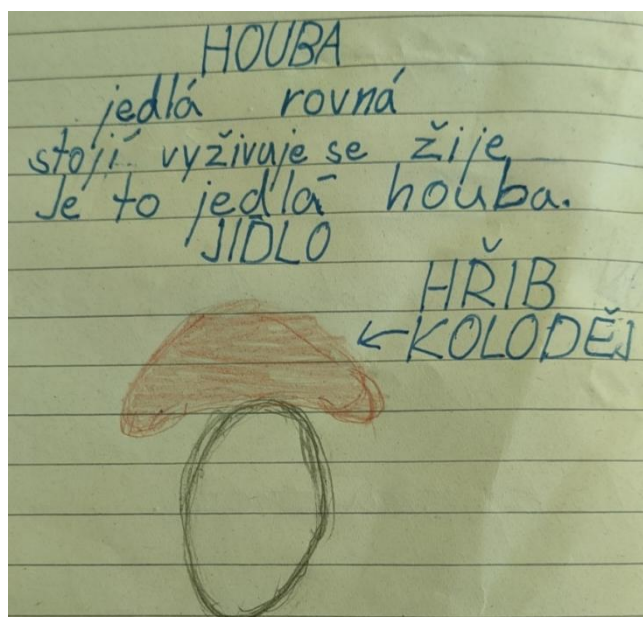 HOUBA
jedlá rovná
stojí vyživuje se žije
Je to jedlá houba.
JÍDLO
HŘIB
← KOLODĚJ